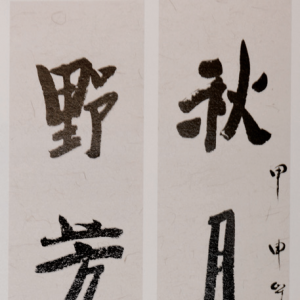 秋月
甲申
野芳